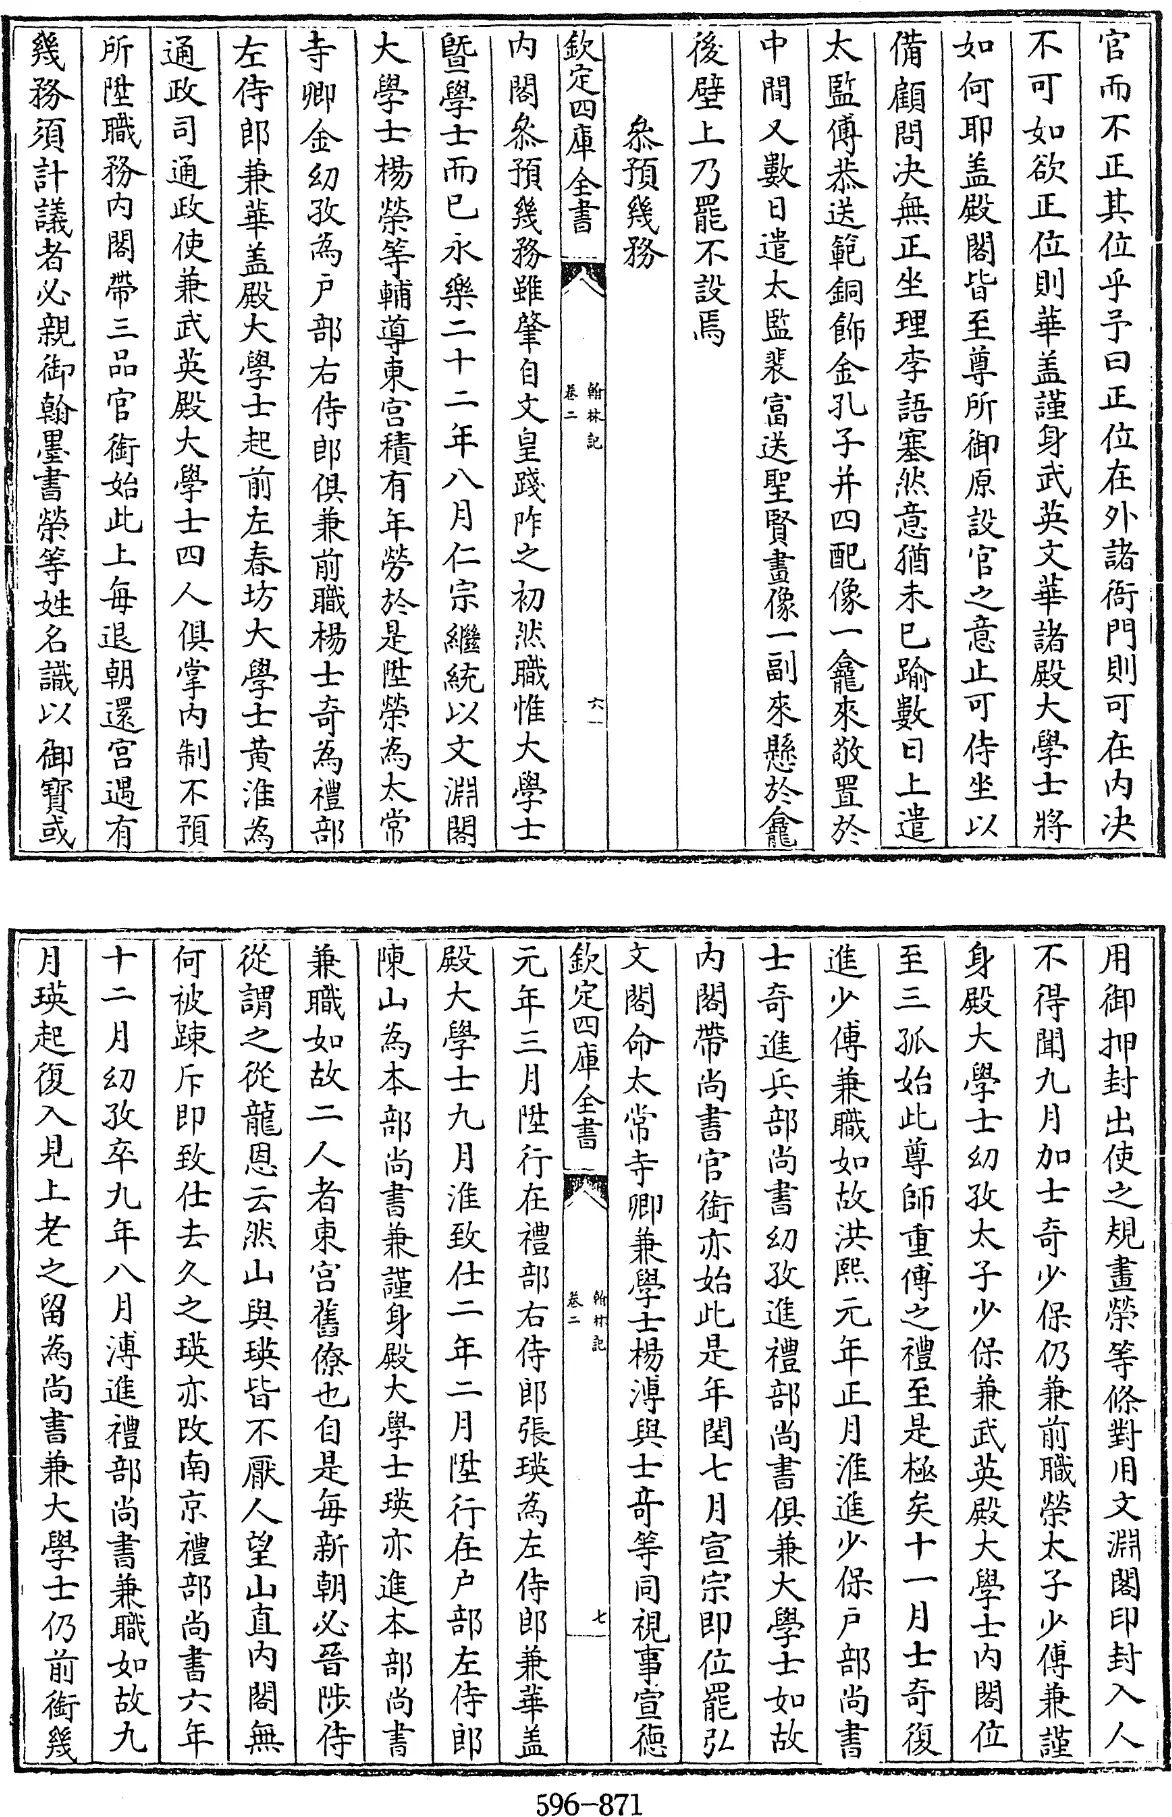 官而不正其位乎予曰正位在外諸衙門則可在内决
不可如欲正位則華盖謹身武英文華諸殿大學士將
如何耶盖殿閣皆至尊所御原設官之意止可侍坐以
備顧問决無正坐理李語塞然意猶未已踰數日上遣
太監傅恭送範銅飾金孔子并四配像一龕來敬置於
中間又數日遣太監裴富送聖賢畫像一副來懸於龕
後壁上乃罷不設焉
叅預幾務
欽定四庫全書
翰林記
卷二
六
内閣叅預幾務雖肇自文皇踐阼之初然職惟大學士
暨學士而已永樂二十二年八月仁宗繼統以文淵閣
大學士楊榮等輔導東宫積有年勞於是陞榮為太常
寺卿金幼孜為户部右侍郎俱兼前職楊士奇為禮部
左侍郎兼華盖殿大學士起前左春坊大學士黄淮為
通政司通政使兼武英殿大學士四人俱掌内制不預
所陞職務内閣帶三品官銜始此上每退朝還宫遇有
幾務須計議者必親御翰墨書榮等姓名識以御寶或
用御押封出使之規畫榮等條對用文淵閣印封入人
不得聞九月加士奇少保仍兼前職榮太子少傅兼謹
身殿大學士幼孜太子少保兼武英殿大學士内閣位
至三孤始此尊師重傅之禮至是極矣十一月士奇復
進少傅兼職如故洪熙元年正月淮進少保户部尚書
士奇進兵部尚書幼孜進禮部尚書俱兼大學士如故
内閣帶尚書官銜亦始此是年閏七月宣宗即位罷弘
文閣命太常寺卿兼學士楊溥與士奇等同視事宣德
欽定四庫全書
翰林記
卷二
七
元年三月陞行在禮部右侍郎張瑛為左侍郎兼華盖
殿大學士九月淮致仕二年二月陞行在户部左侍郎
陳山為本部尚書兼謹身殿大學士瑛亦進本部尚書
兼職如故二人者東宫舊僚也自是每新朝必晉陟侍
從謂之從龍恩云然山與瑛皆不厭人望山直内閣無
何被疎斥即致仕去久之瑛亦改南京禮部尚書六年
十二月幼孜卒九年八月溥進禮部尚書兼職如故九
月瑛起復入見上老之留為尚書兼大學士仍前銜幾
596-871